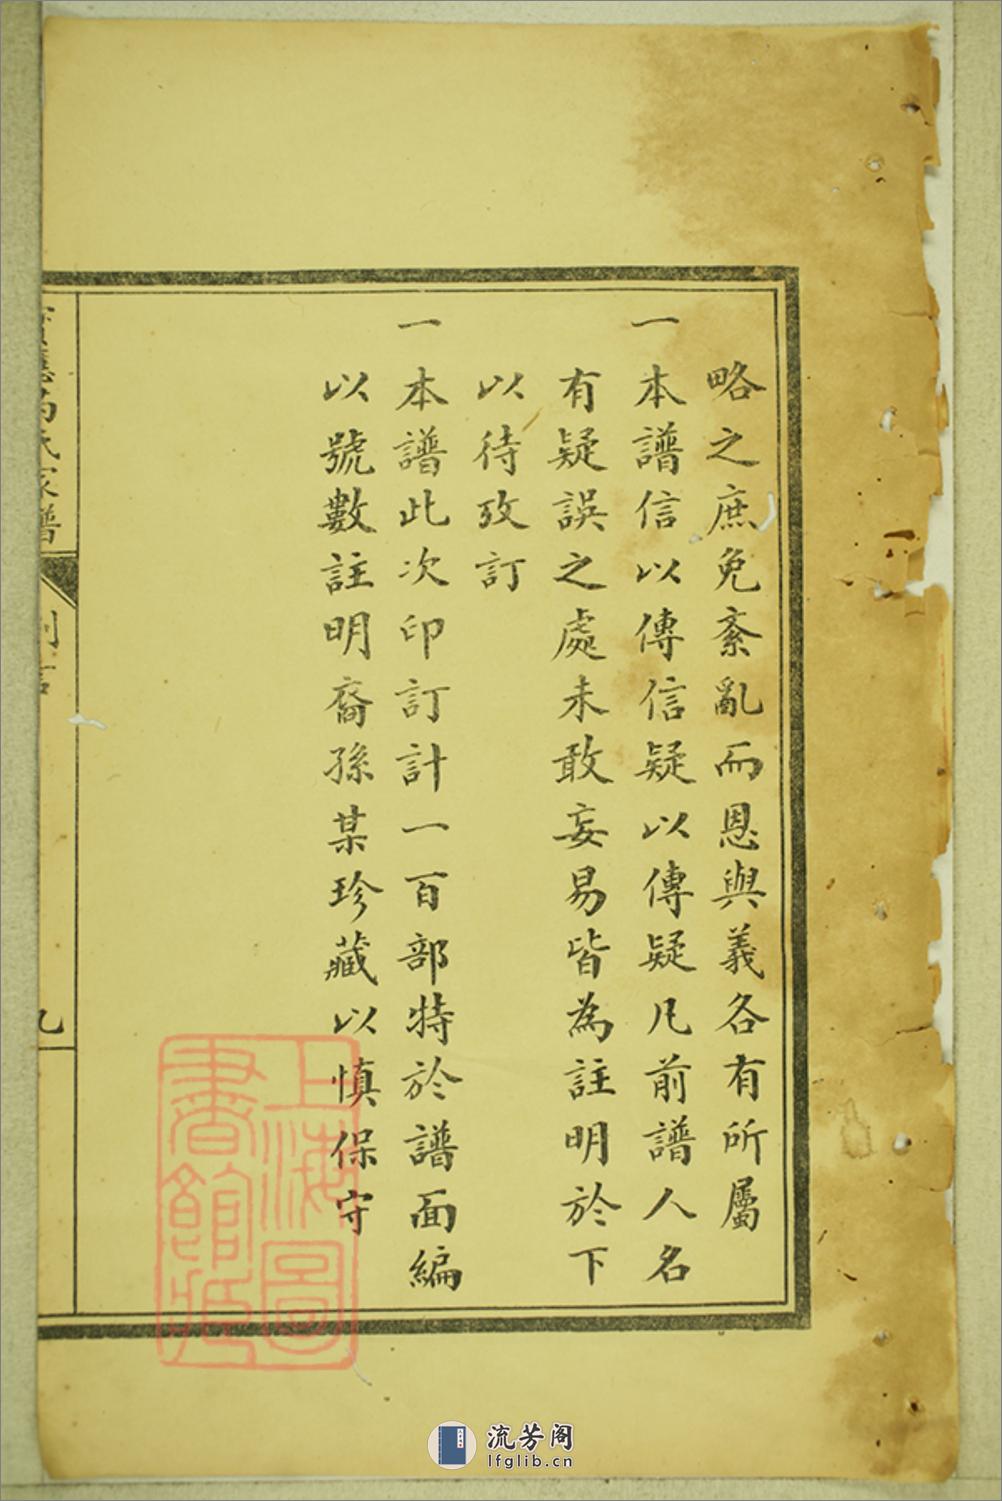 略之庶免紊亂而恩與義各有所屬
一本譜信以傳信疑以傳疑凡前譜人名
有疑誤之處未敢妄易皆為註明於下
以待攷訂
一本譜此次印訂計一百部特於譜面編
以號數註明裔孫某珍藏以慎保守
氏家譜
九
上海圖
書館藏
流芳阁
lfglib.cn